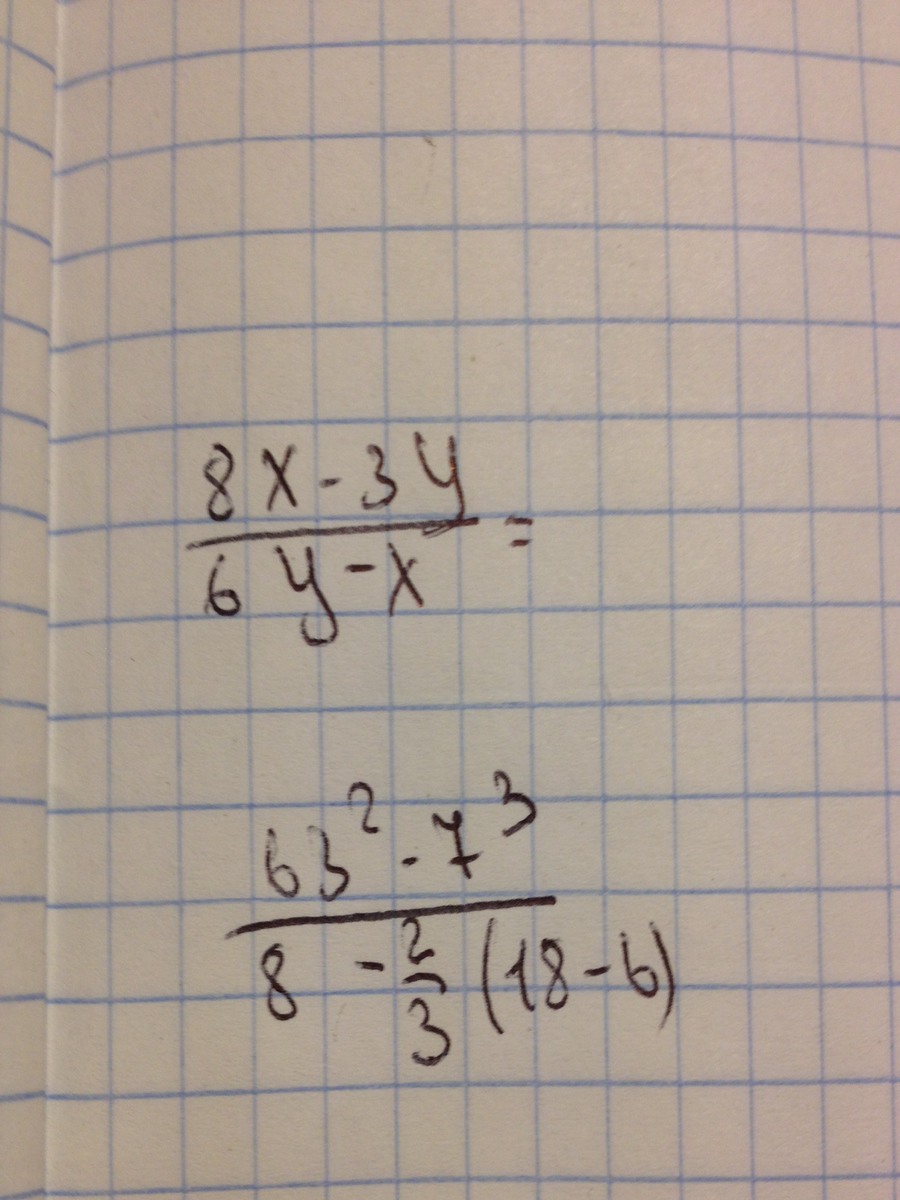 8x-3y
6y-x =
63² - 7³
8 - 2/3 (18-6)